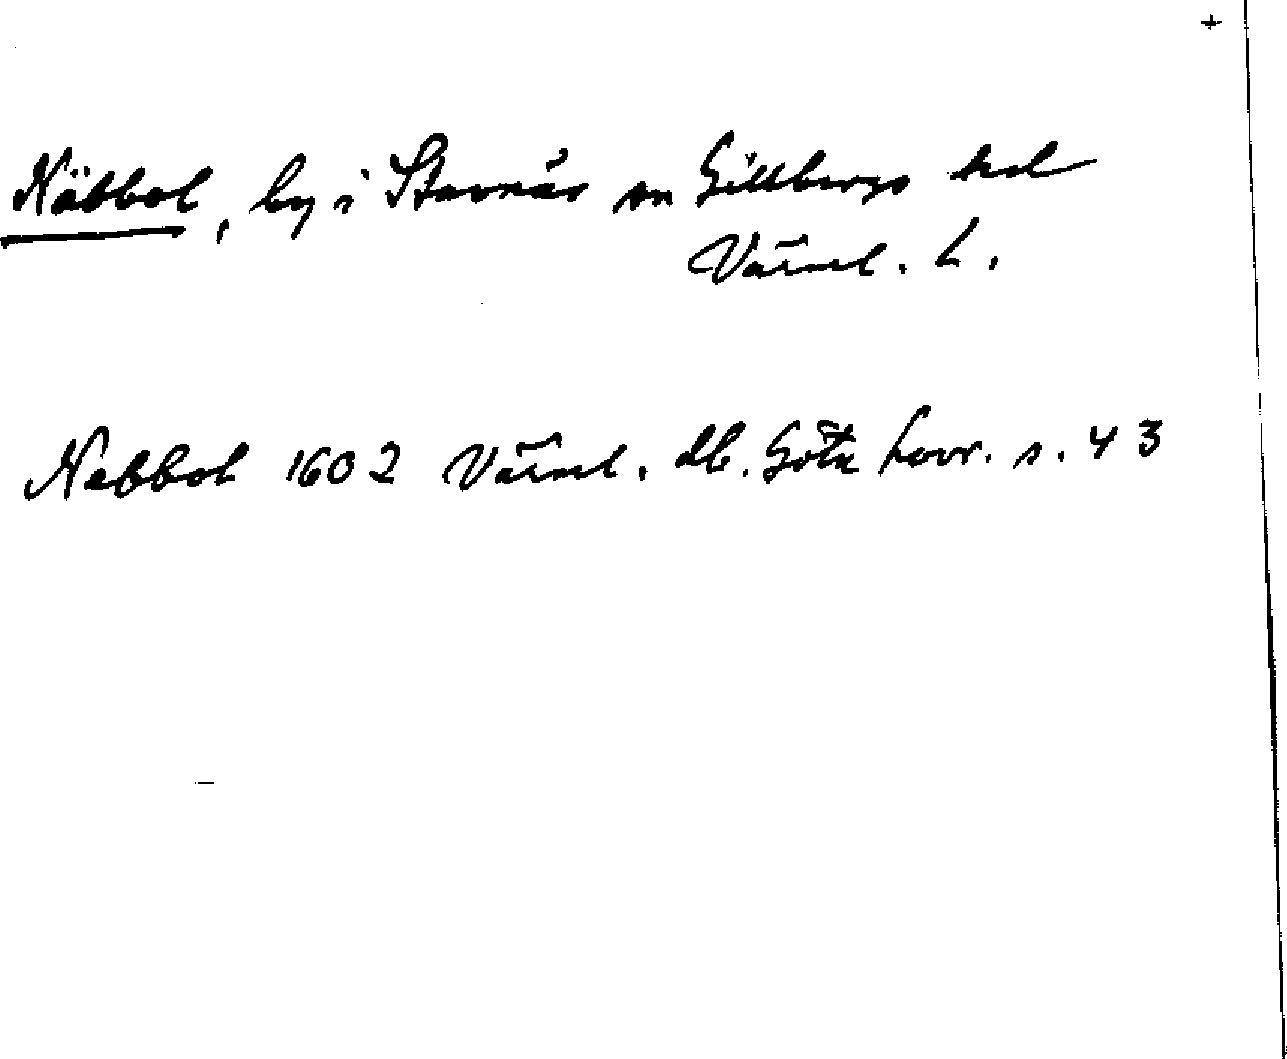 +
Näbbol, by i Stavnäs sn Gillbergs hd
Värml. L.
Nebbol 1602 Värml. db. Göta hovr. s. 43